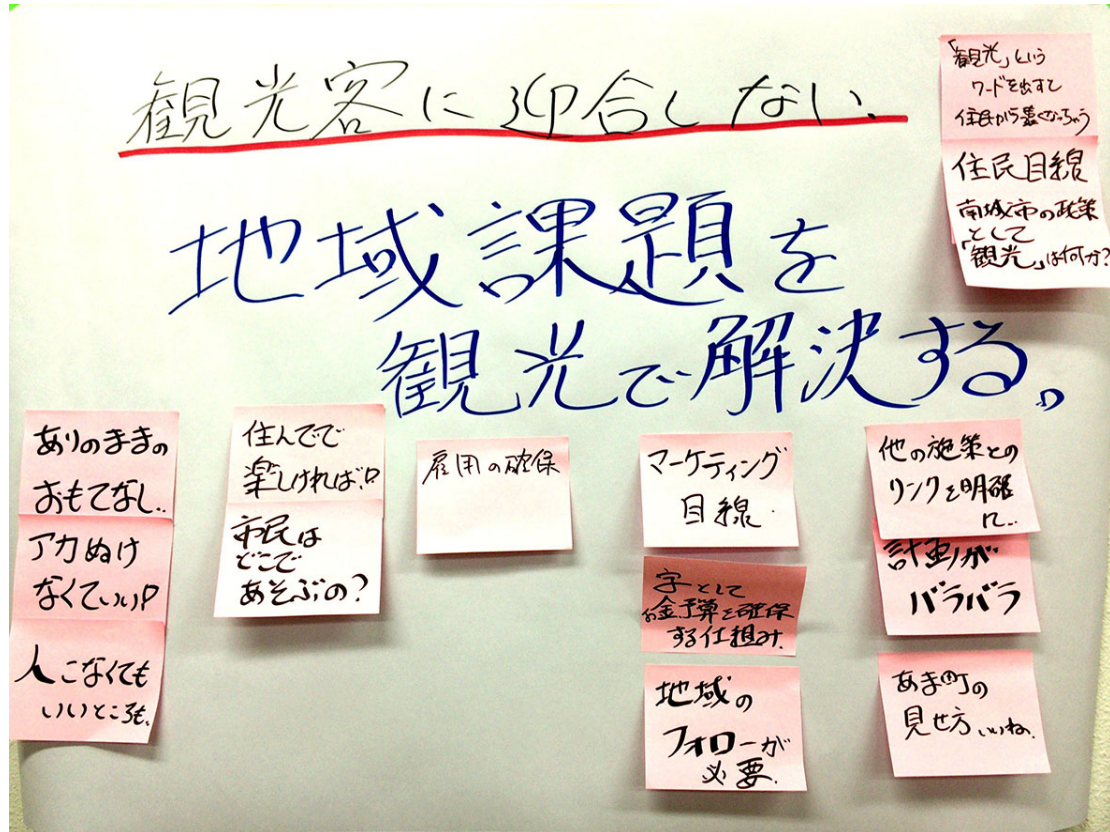 観光客に迎合しない。
地域課題を
観光で解決する。
「観光」という
ワードを出すと
住民から悪くなっちゃう
住民目線
南城市の政策
として
「観光」は何か?
ありのままの
おもてなし..
アカぬけ
なくていい!?
人こなくても
いいところも。
住んでて
楽しければ!?
市民は
どこで
あそぶの?
雇用の確保
マーケティング
目線.
字として
お金予算を確保
する仕組み.
地域の
フォローが
必要.
他の施策との
リンクを明確
に..
計画が
バラバラ
あま町の
見せ方いいね。